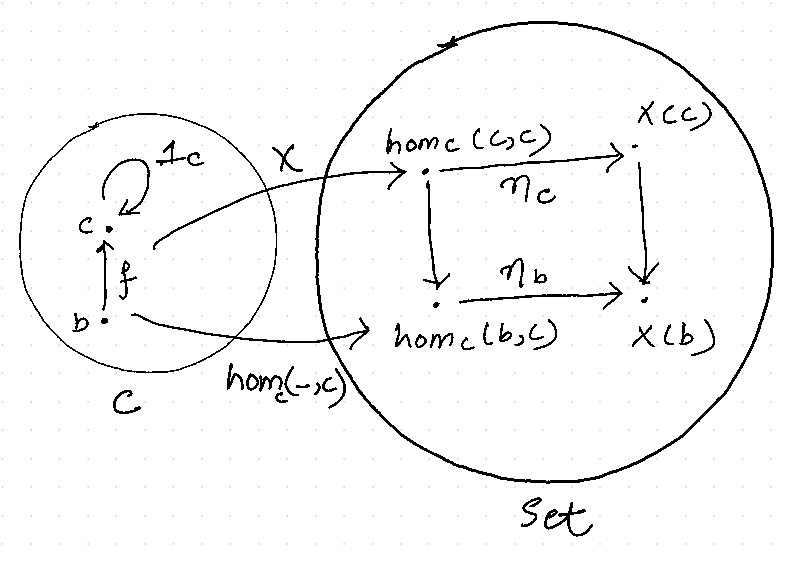 1c
c
f
b
C
X
hom_c(-,c)
hom_c(c,c)
η_c
X(c)
η_b
hom_c(b,c)
X(b)
Set